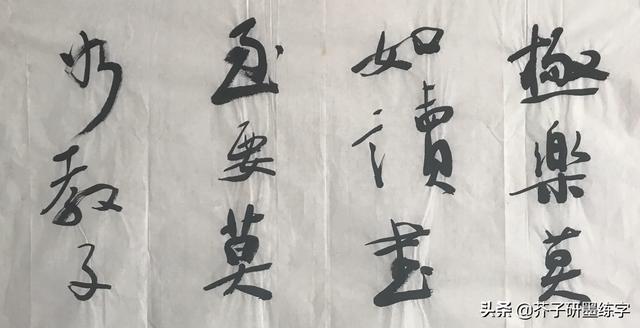 極樂莫
如讀書
至要莫
如教子
头条 @芥子研墨练字